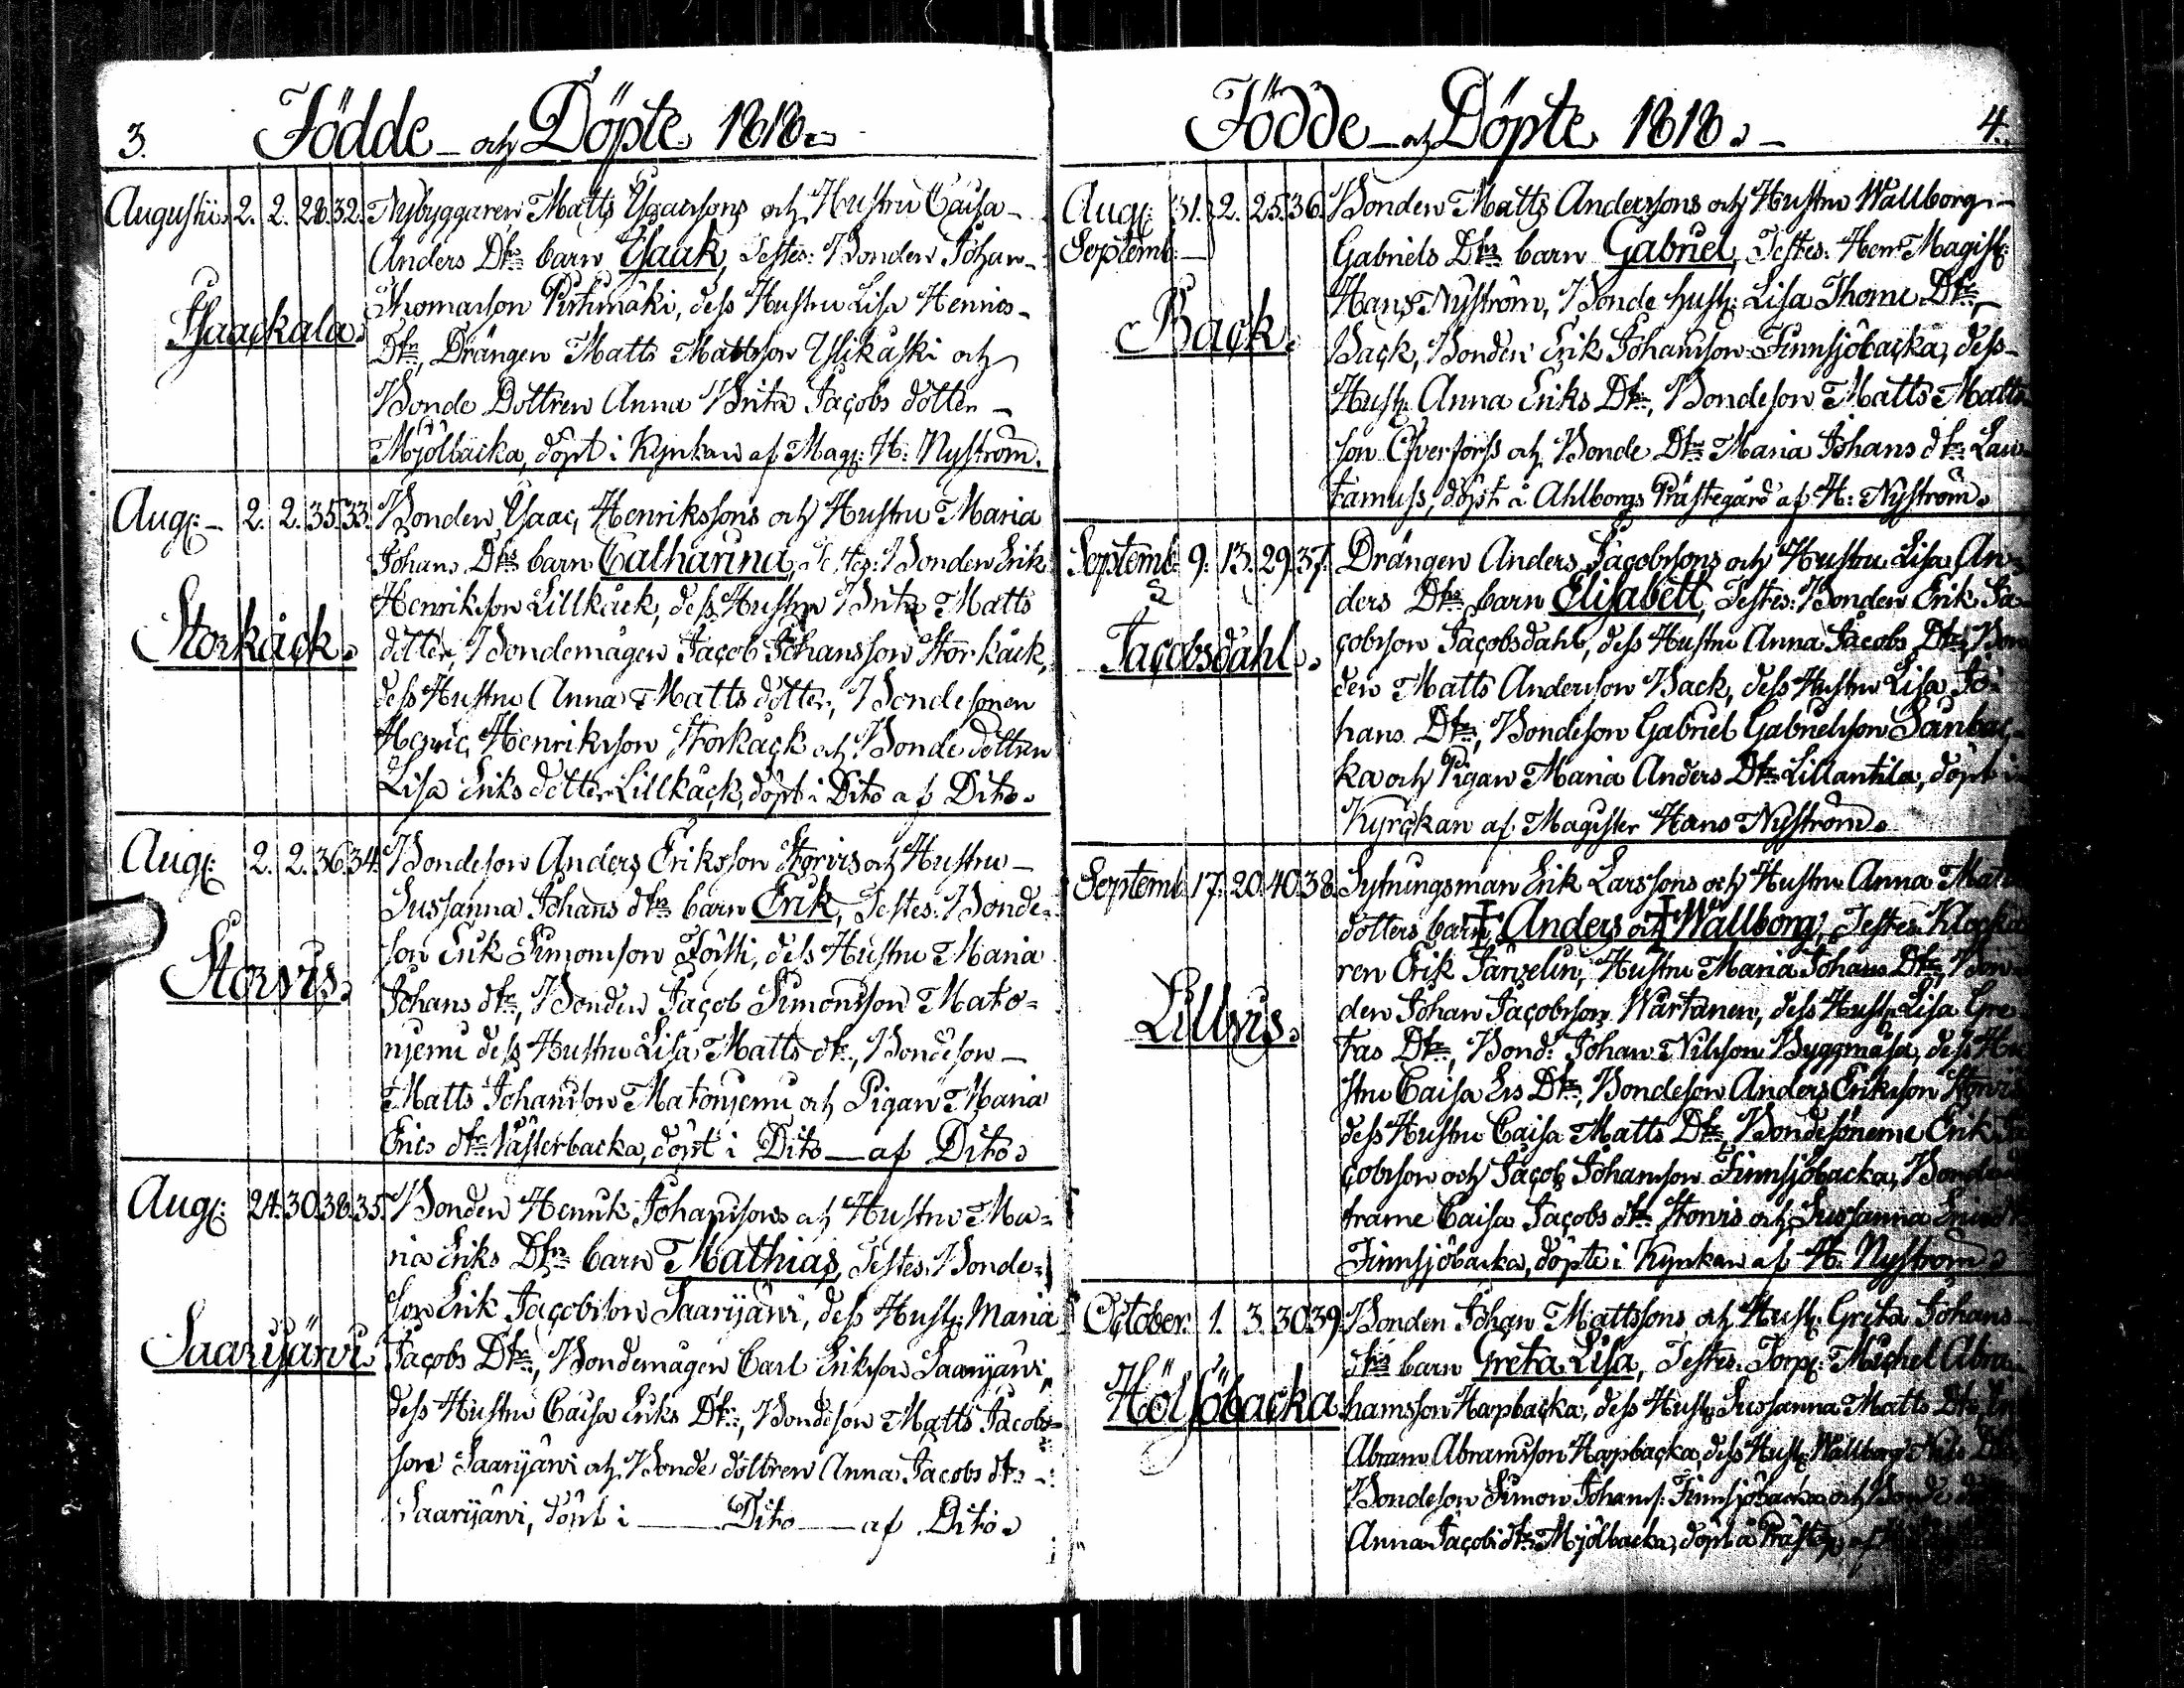 3. Födde och Döpte 1818.
Augustii. 2. 2. 28. 32. Nybyggaren Matts Ysacssons och Hustru Caisa
Anders Dtrs barn Ysaak, Testes: Bonden Johan
Ysaackala. Thomasson Pirtimäki, dess Hustru Lisa Henrics
Dtr, Drängen Matts Mattsson Ylikäski och
Bonde Dottren Anna Brita Jacobs dotter
Mjölbacka, döpt i Kyrkan af Mag: H: Nyström.
Aug: 2. 2. 35. 33. Bonden Ysaac Henrikssons och Hustru Maria
Johans Dtrs barn Catharina, Testes: Bonden Erik
Henriksson Lillkäck, dess Hustru Brita Matts
Storkäck. dotter, Bondemågen Jacob Johansson Storkäck,
dess Hustru Anna Matts dotter, Bondesonen
Henric Henriksson Storkäck och Bonde dottren
Lisa Eriks dotter Lillkäck, döpt i Dito af Dito.
Aug: 2. 2. 36. 34. Bondeson Anders Eriksson Storvis och Hustru
Sussanna Johans dtrs barn Erik, Testes: Bonde-
son Erik Simonsson Förtti, dess Hustru Maria
Storvis. Johans dtr, Bonden Jacob Simonsson Mato-
njemi dess Hustru Lisa Matts dtr, Bondeson
Matts Johansson Matonjemi och Pigan Maria
Erics dtr Västerbacka, döpt i Dito af Dito.
Aug: 24. 30. 38. 35. Bonden Henrik Johanssons och Hustru Ma-
ria Eriks Dtrs barn Mathias, Testes: Bonde-
son Erik Jacobsson Saarijärvi, dess Hust: Maria
Saarijärvi Jacobs Dtr, Bondemågen Carl Eriksson Saarijärvi
dess Hustru Caisa Eriks Dtr, Bondeson Matts Jacobs-
son Saarijärvi och Bonde dottren Anna Jacobs dtr
Saarijärvi, döpt i Dito af Dito.
Födde och Döpte 1818. 4.
Aug: 31. 2. 25. 36. Bonden Matts Anderssons och Hustru Wallborg
Septemb: Gabriels Dtrs barn Gabriel, Testes: Herr Magist:
Hans Nyström, Bonde hust: Lisa Thom: Dtr,
Back. Back, Bonden Erik Johansson Finnsjöbacka, dess
Hust: Anna Eriks Dtr, Bondeson Matts Matts
son Öfverforss och Bonde Dtr Maria Johans dtr Lau
tamuss, döpt å Ahlborgs Prästegård af H: Nyström.
Septemb: 9. 13. 29. 37. Drängen Anders Jacobssons och Hustru Lisa An-
ders Dtrs barn Elisabett, Testes: Bonden Erik Ja
Jacobsdahl. cobsson Jacobsdahl, dess Hustru Anna Jacobs Dtr, Bon
den Matts Andersson Back, dess Hustru Lisa Jo-
hans Dtr, Bondeson Gabriel Gabrielsson Saunbac-
ka och Pigan Maria Anders Dtr Lillantila, döpt i
Kyrckan af Magister Hans Nyström.
Septemb: 17. 20. 40. 38. Sytningsman Erik Larssons och Hustru Anna Matts
dotters barn Anders och Wallborg, Testes: Klocka
ren Erik Järvelin, Hustru Maria Johans Dtr, Bon
den Johan Jacobsson Wärtanen, dess Hust: Lisa Gre
Lillvis. tas Dtr, Bond: Johan Nilsson Byggmäsa, dess Hu
stru Caisa Ers Dtr, Bondeson Anders Eriksson Storvis
dess Hustru Caisa Matts Dtr, Bondesönerne Erik Ja
cobsson och Jacob Johansson Finnsjöbacka, Bondedöt
trarne Caisa Jacobs dtr Storvis och Sussanna Erics dtr
Finnsjöbacka, döpte i Kyrkan af H. Nyström.
October: 1. 3. 30. 39. Bonden Johan Mattssons och Hust: Greta Johans
dtrs barn Greta Lisa, Testes: Torp: Michel Abra
Höljöbacka hamsson Hapbacka, dess Hust: Sussanna Matts Dtr
Abram Abramsson Hapbacka, dess Hust: Wallborg Nils
Bondeson Simon Johans: Finnsjöbacka och Bonde
Anna Jacobs dtr Mjölbacka, döpt å Präst: af